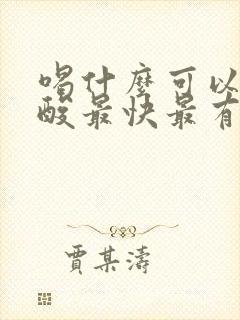 喝什麼可以
酸最快最有
賈某濤